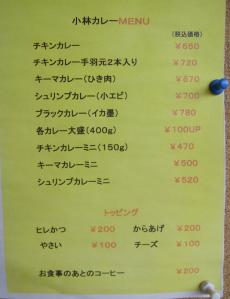 小林カレーMENU
(税込価格)
チキンカレー ￥650
チキンカレー手羽元2本入り ￥720
キーマカレー(ひき肉) ￥670
シュリンプカレー(小エビ) ￥700
ブラックカレー(イカ墨) ￥780
各カレー大盛(400g) ￥100UP
チキンカレーミニ(150g) ￥470
キーマカレーミニ ￥500
シュリンプカレーミニ ￥520
トッピング
ヒレかつ ￥200 からあげ ￥200
やさい ￥100 チーズ ￥100
お食事のあとのコーヒー ￥200